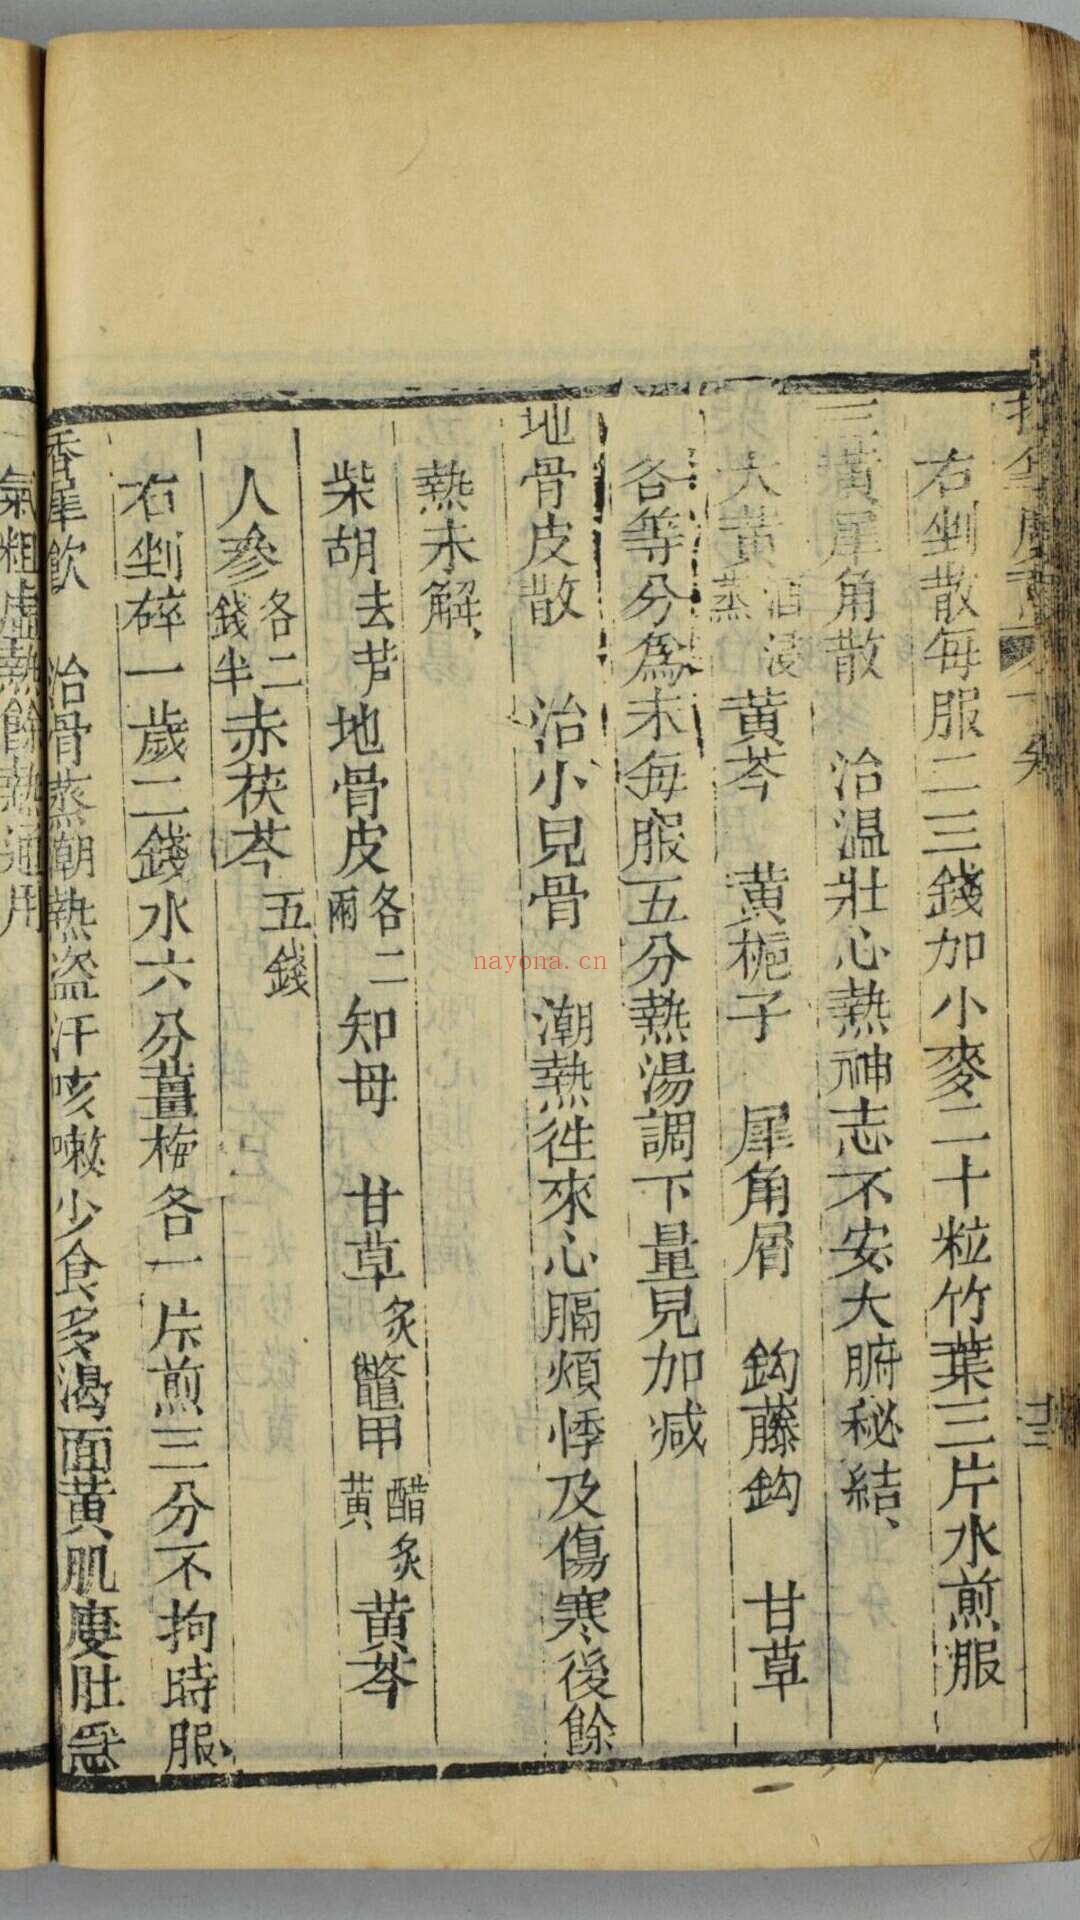 右剉散每服二三錢加小麥二十粒竹葉三片水煎服
三黃犀角散　治溫壯心熱神志不安大腑秘結、
大黃酒浸蒸　黄芩　黄梔子　犀角屑　鈎藤鈎　甘草
各等分爲末每服五分熱湯調下量見加減
地骨皮散　治小兒骨　潮熱徃來心膈煩悸及傷寒後餘
熱未解、
柴胡去芦　地骨皮各二兩　知母　甘草炙　鼈甲醋炙黄　黄芩
人參各二錢半　赤茯苓五錢
右剉碎一歲二錢水六分薑梅各一片煎三分不拘時服
香犀飲　治骨蒸潮熱盗汗咳嗽少食多渴面黄肌瘦肚急
氣粗虛熱餘熱通用
nayona.cn